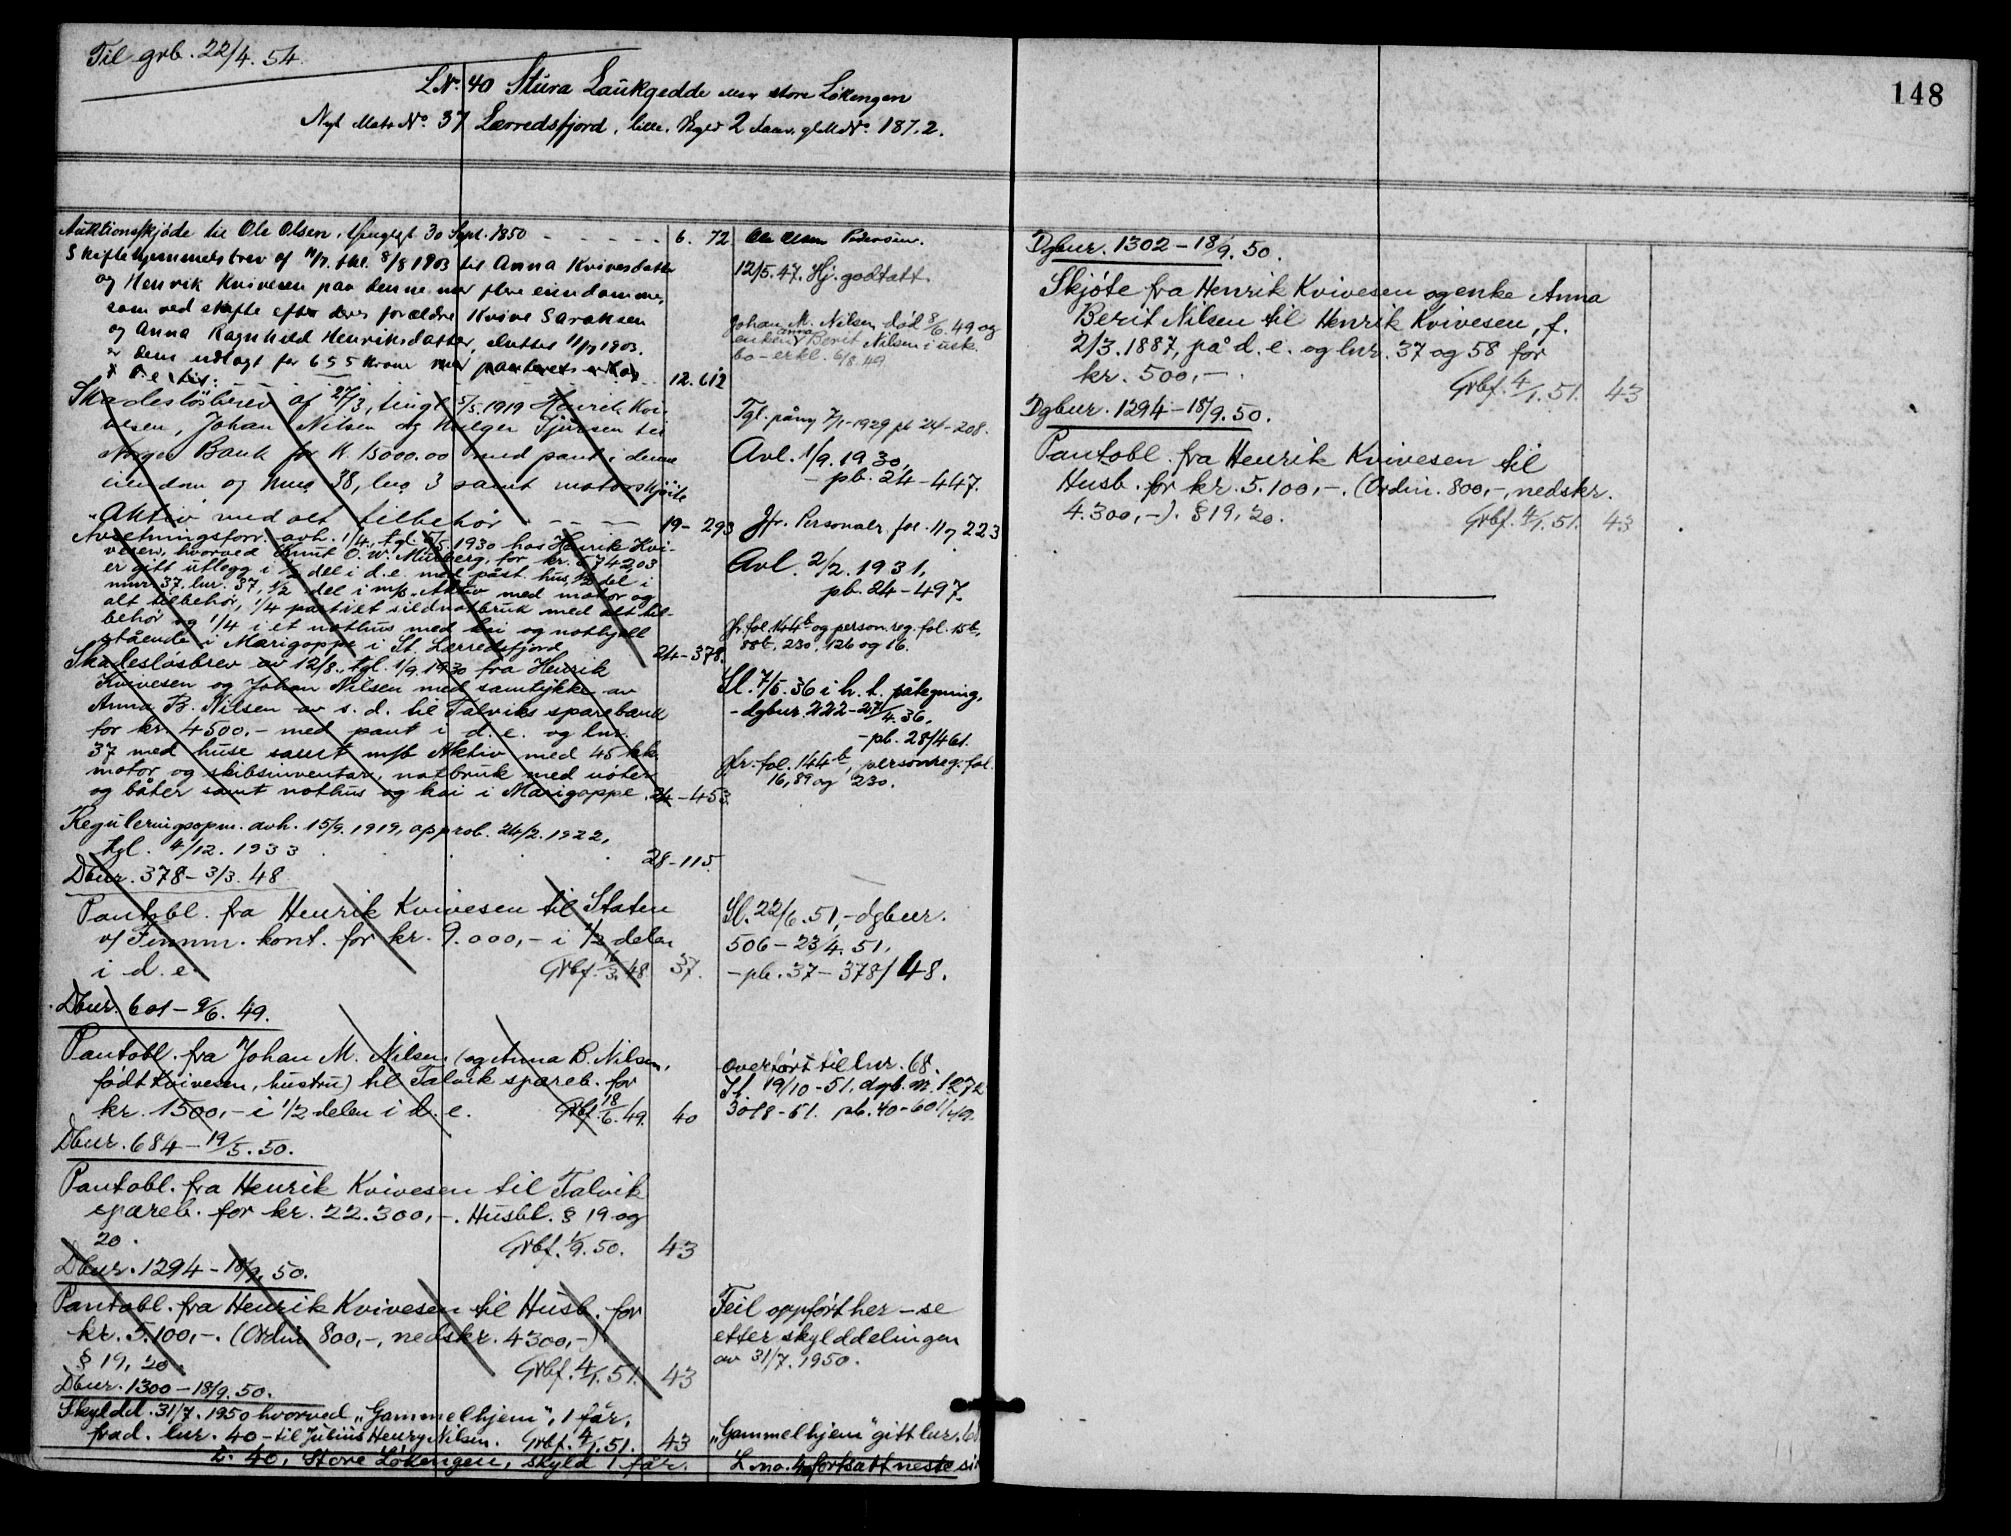 Til grb. 22/4. 54.
LNo. 40 Stura Laukgedde eller store Løkengen
Nyt Matr No. 37 Lerredsfjord, lille. Skyld 2 gl MNo. 187.2.
148
Auktionsskjøde til Ole Olsen, thinglyst 30 Sept. 1850 - - - - - 6. 72 Ole Olsen Pedersen.
Skiftehjemmelsbrev af 11/7. thl. 8/8 1903 til Anna Kvivesdatter
og Henrik Kvivesen paa denne med flere eiendomme,
som ved skifte efter deres forældre Kvive Saraksen
og Anna Ragnhild Henriksdatter sluttet 11/7 1903.
er dem udlagt for 655 kroner
12. 612
12/5.47. Hj. godtatt.
Johan M. Nilsen død 8/6.49 og
enken Anna Berit Nilsen i usk.
bo - erkl. 6/8.49
Skadesløsbrev af 27/3, tingl 5/5.1919 Henrik Kvi-
vesen, Johan Nilsen og Hilger Fjursen til
Norges Bank for K. 15000.00 med pant i denne
eiendom og mno 38, lno 3 samt motorskjøite
"Aktiv" med alt tilbehør - - - 19 - 293
Tgl. påny 7/1-1929 pb 24-208.
Avl. 1/9.1930.
- pb. 24-447.
Jfr. Personalr. fol. 11 og 223
Avsetningsforr. avh. 1/4, tgl 5/5.1930 hos Henrik Kvi-
vesen, hvorved Knut O. W. Murberg, for kr. 5742,03
er gitt utlegg i 1/2 del i d.e. med påst. hus, 1/2 del i
mnr. 37, lnr. 37, 1/2 del i m/s. Aktiv med motor og
alt tilbehør, 1/4 part i et sildnotbruk med alt til-
behør og 1/4 i et nothus med kai og nothjell
stående i Marigoppe i St. Lerredsfjord 24-378.
Avl. 2/2.1931.
pb. 24-497.
Jfr. fol. 144b og person.reg. fol. 15b,
88b, 230, 126 og 16.
Skadesløsbrev av 12/8., tgl. 1/9.1930 fra Henrik
Kvivesen og Johan Nilsen med samtykke av
Anna B. Nilsen av s.d. til Talviks sparebank
for kr. 4500.- med pant i d.e. og lnr.
37 med huse samt m/b Aktiv med 45 hk.
motor og skibsinventar, notbruk med nøter
og båter samt nothus og kai i Marigoppe. 24-453.
Sl. 7/5.36 i h.t. påtegning,
- dgbnr. 222-27/4.36.
- pb. 28/461.
Jfr. fol. 144b, personreg. fol.
16, 89 og 230.
Reguleringsopm. avh. 15/9.1919, approb. 24/2.1922,
tgl. 4/12.1933 . . . . 28-115.
Dbnr. 378 - 3/3. 48
Pantobl. fra Henrik Kvivesen til Staten
v/ Finnm. kont. for kr. 9.000,- i 1/2 delen
i d. e. Grbf. 48 37.
Sl. 22/6.51, - dgbnr.
506 - 23/4.51.
- pb. 37 - 378/48.
Dbnr. 601 - 9/6. 49.
Pantobl. fra Johan M. Nilsen (og Anna B. Nilsen,
født Kvivesen, hustru) til Talvik spareb. for
kr. 1500,- i 1/2 delen i d. e. Grbf. 18/6.49. 40
overført til lnr. 68.
Sl. 19/10-51. dgb. nr. 1272
30/8-51. pb. 40-601/49.
Dbnr. 684 - 19/5. 50.
Pantobl. fra Henrik Kvivesen til Talvik
spareb. for kr. 22.300,-. Husbl. § 19 og
20. Grbf. 1/9.50. 43
Dbnr. 1294 - 18/9. 50.
Pantobl. fra Henrik Kvivesen til Husb. for
kr. 5.100,-. (Ordin 800,-, nedskr. 4300,-).
§ 19, 20. Grbf. 4/1.51. 43
Feil oppført her - se
etter skylddelingen
av 31/7.1950.
Dbnr. 1300 - 18/9.50.
Skylddel. 31/7.1950 hvorved "Gammelhjem", 1 før,
frad. lnr. 40 - til Julius Henry Nilsen. Grbf. 4/1.51. 43
"Gammelhjem" gitt lnr.
L. 40, Store Løkengen, skyld 1 før. L. no. 40 fortsatt neste
Dgbnr. 1302 - 18/9. 50.
Skjøte fra Henrik Kvivesen og enke Anna
Berit Nilsen til Henrik Kvivesen, f.
2/3.1887, på d. e. og lnr. 37 og 58 for
kr. 500,-. Grbf. 4/1.51. 43
Dgbnr. 1294 - 18/9.50.
Pantobl. fra Henrik Kvivesen til
Husb. for kr. 5.100,-. (Ordin. 800,-, nedskr.
4.300,-). § 19, 20. Grbf. 4/1.51. 43